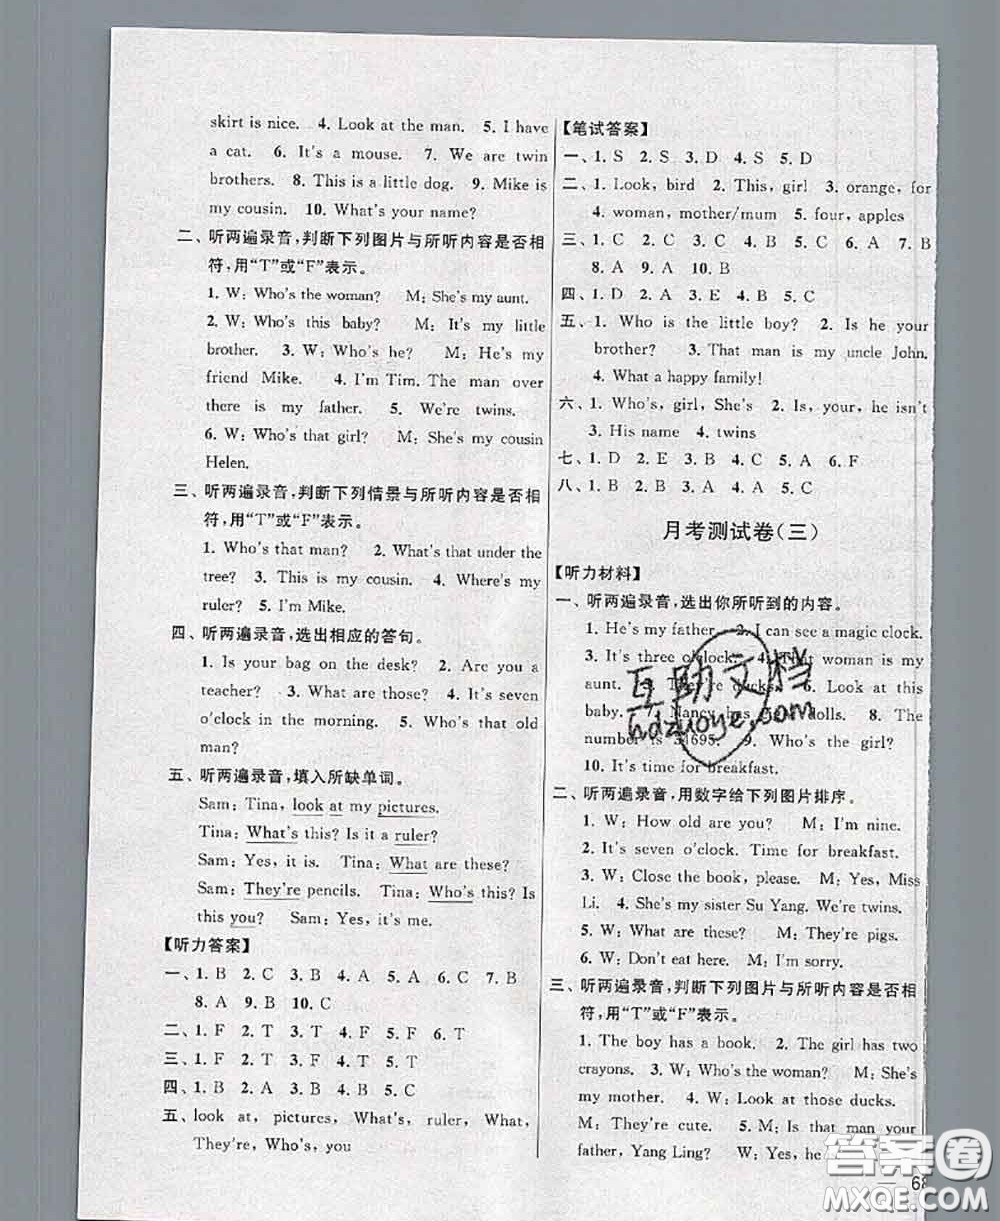 skirt is nice. 4. Look at the man. 5. I have
a cat. 6. It's a mouse. 7. We are twin
brothers. 8. This is a little dog. 9. Mike is
my cousin. 10. What's your name?
二、听两遍录音,判断下列图片与所听内容是否相
符,用“T”或“F”表示。
1. W: Who's the woman? M: She's my aunt.
2. W: Who's this baby? M: It's my little
brother. 3. W: Who's he? M: He's my
friend Mike. 4. I'm Tim. The man over
there is my father. 5. We're twins.
6. W: Who's that girl? M: She's my cousin
Helen.
三、听两遍录音,判断下列情景与所听内容是否相
符,用“T”或“F”表示。
1. Who's that man? 2. What's that under the
tree? 3. This is my cousin. 4. Where's my
ruler? 5. I'm Mike.
四、听两遍录音,选出相应的答句。
1. Is your bag on the desk? 2. Are you a
teacher? 3. What are those? 4. It's seven
o'clock in the morning. 5. Who's that old
man?
五、听两遍录音,填入所缺单词。
Sam: Tina, look at my pictures.
Tina: What's this? Is it a ruler?
Sam: Yes, it is. Tina: What are these?
Sam: They're pencils. Tina: Who's this? Is
this you? Sam: Yes, it's me.
【听力答案】
一、1. B 2. C 3. B 4. A 5. A 6. C 7. B
8. A 9. B 10. C
二、1. F 2. T 3. T 4. F 5. F 6. T
三、1. F 2. T 3. F 4. F 5. T
四、1. B 2. A 3. B 4. B 5. C
五、look at, pictures, What's, ruler, What,
They're, Who's, you
【笔试答案】
一、1. S 2. S 3. D 4. S 5. D
二、1. Look, bird 2. This, girl 3. orange, for
4. woman, mother/mum 5. four, apples
三、1. C 2. C 3. C 4. B 5. C 6. A 7. B
8. A 9. A 10. B
四、1. D 2. A 3. E 4. B 5. C
五、1. Who is the little boy? 2. Is he your
brother? 3. That man is my uncle John.
4. What a happy family!
六、1. Who's, girl, She's 2. Is, your, he isn't
3. His name 4. twins
七、1. D 2. E 3. B 4. C 5. A 6. F
八、1. B 2. B 3. A 4. A 5. C
月考测试卷(三)
【听力材料】
一、听两遍录音,选出你所听到的内容。
1. He's my father. 2. I can see a magic clock.
3. It's three o'clock. 4. That woman is my
aunt. 5. They are ducks. 6. Look at this
baby. 7. Nancy has dolls. 8. The
number is 31695. 9. Who's the girl?
10. It's time for breakfast.
二、听两遍录音,用数字给下列图片排序。
1. W: How old are you? M: I'm nine.
2. It's seven o'clock. Time for breakfast.
3. W: Close the book, please. M: Yes, Miss
Li. 4. She's my sister Su Yang. We're twins.
5. W: What are these? M: They're pigs.
6. W: Don't eat here. M: I'm sorry.
三、听两遍录音,判断下列图片与所听内容是否相
符,用“T”或“F”表示。
1. The boy has a book. 2. The girl has two
crayons. 3. W: Who's the woman? M: She's
my mother. 4. W: Look at those ducks.
M: They're cute. 5. M: Is that man your
father, Yang Ling? W: Yes, he
68
互助文档
hdzuoye.com
答案圈
MXQE.COM